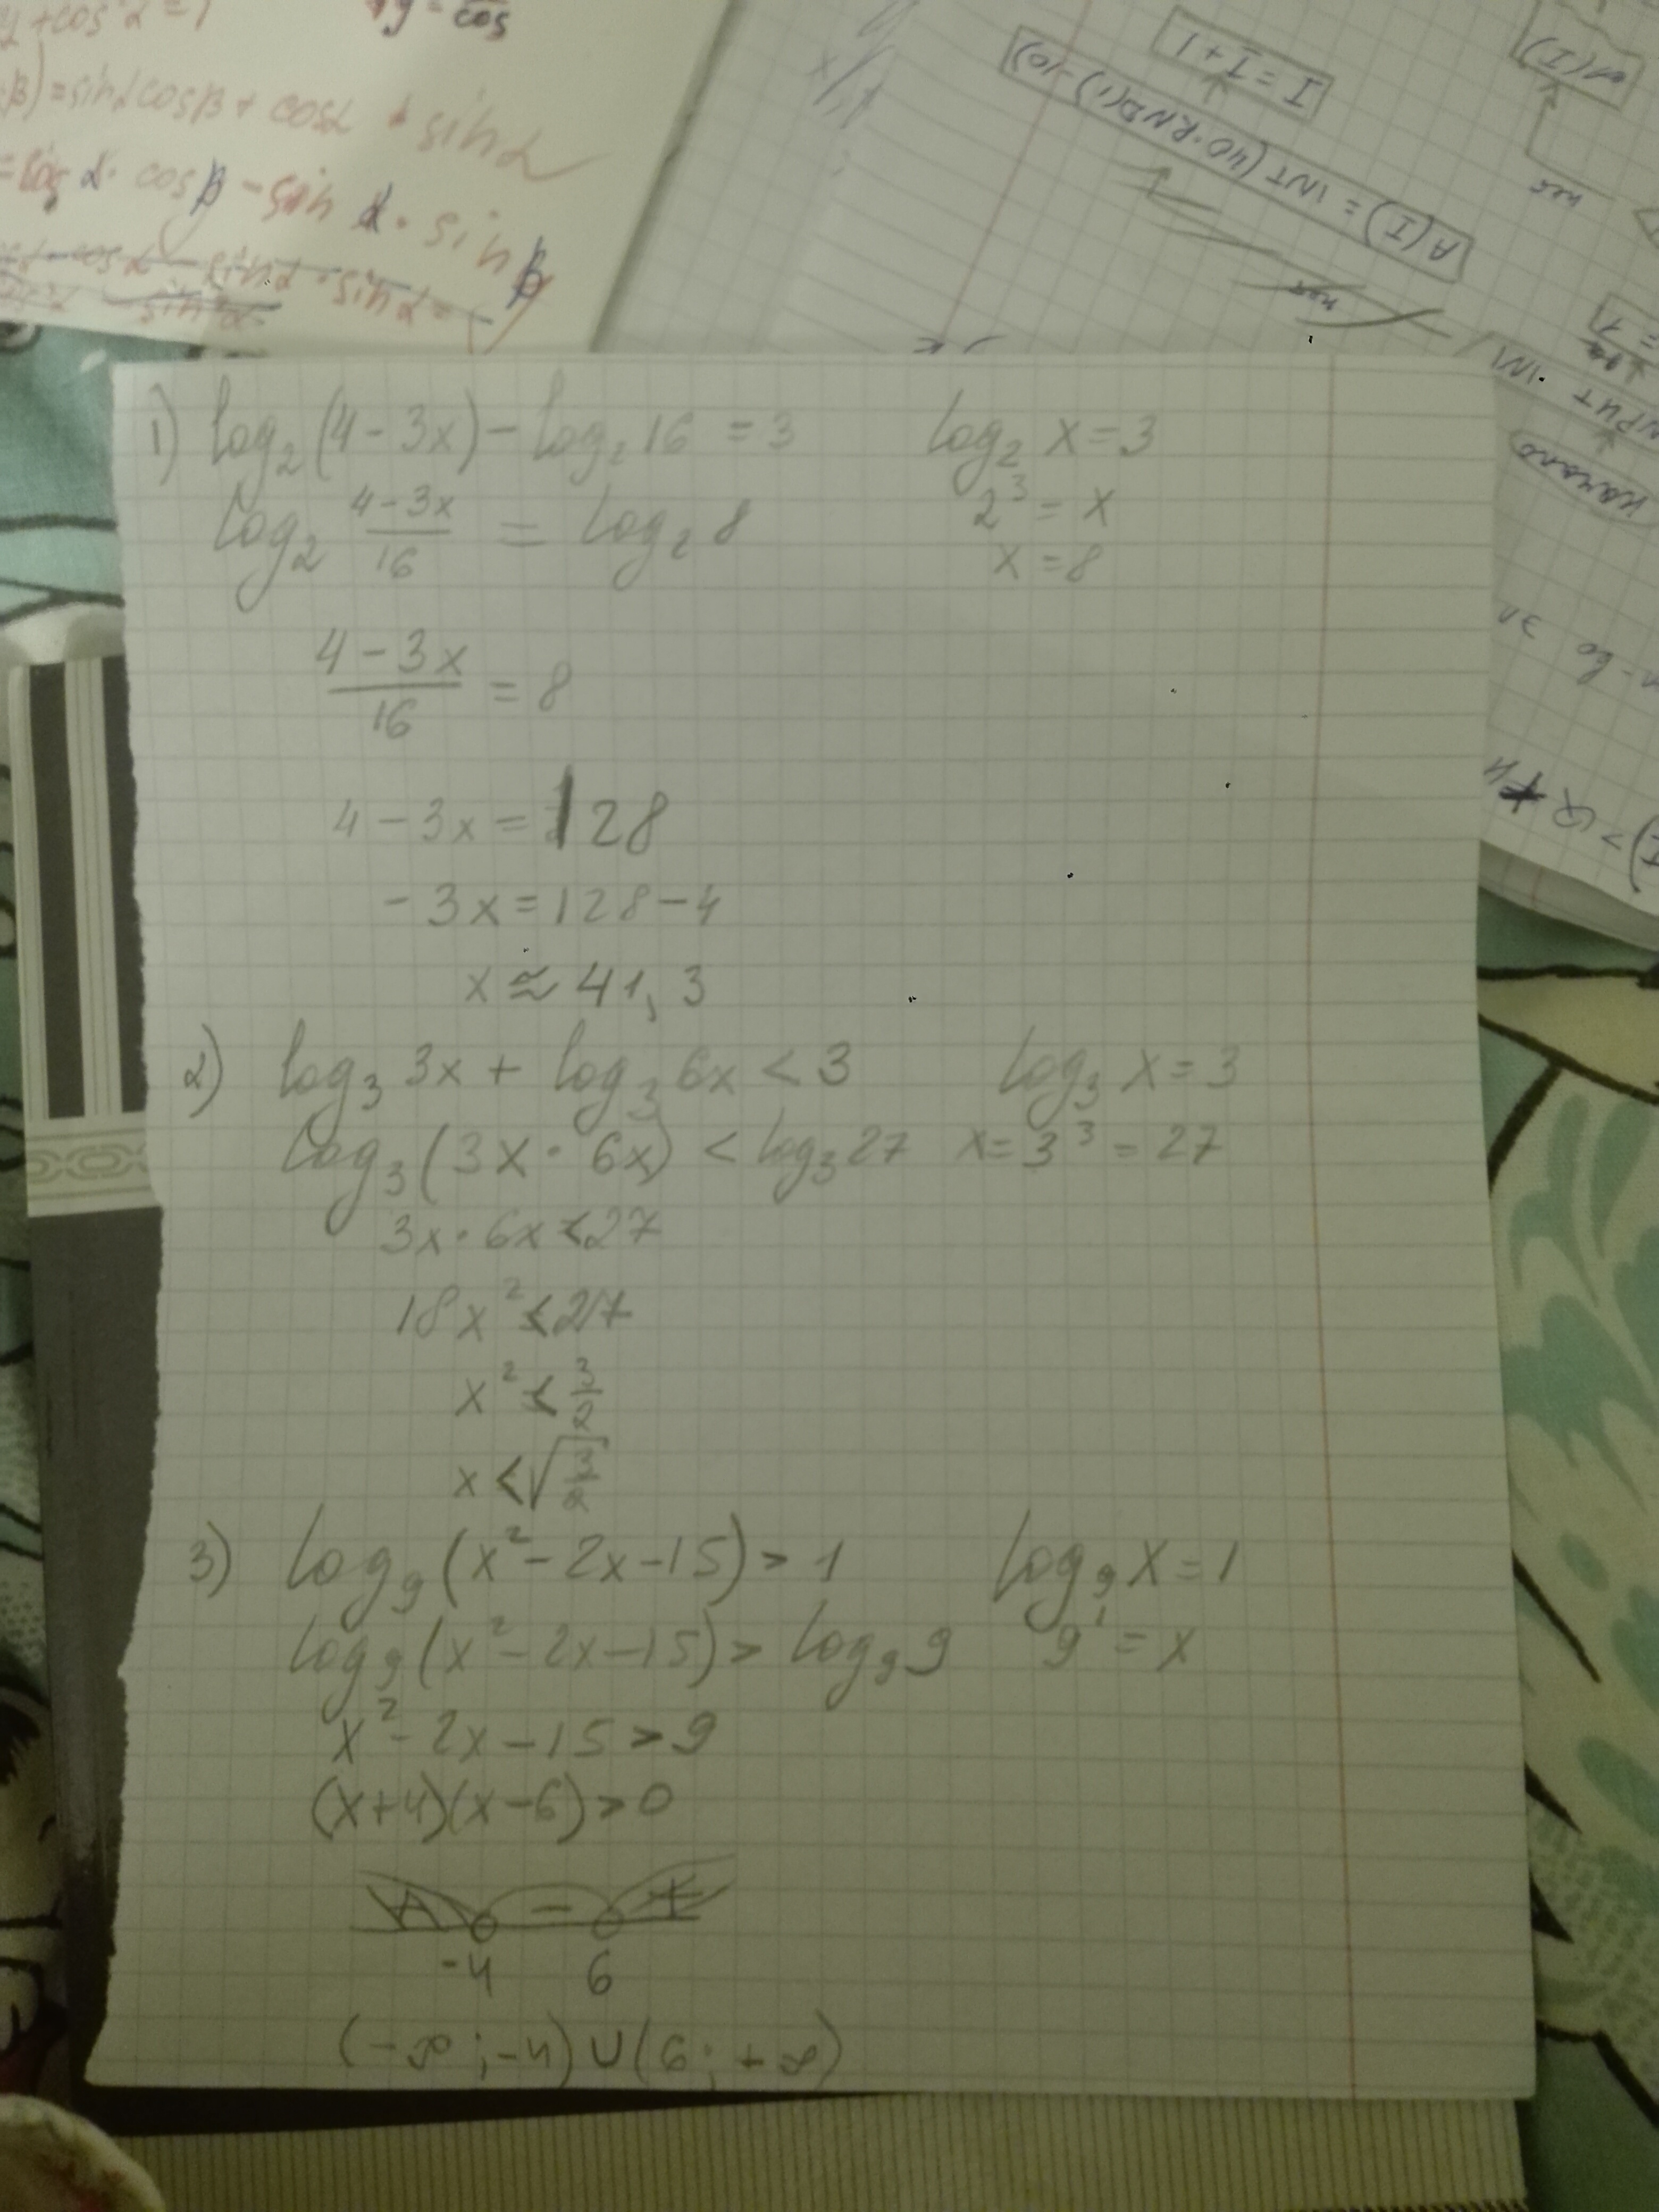 y+cos²α=1
tg = — cos
β)=sinαcosβ + cosα · sinα
· cosβ - sin α · sin β
I = I + 1
A(I) = INT (40·RND(1)-10)
нет
начало
1) log₂(4-3x) - log₂16 = 3    log₂ x = 3
log₂ (4-3x)/16 = log₂ 8    2³ = x
x = 8
(4-3x)/16 = 8
4 - 3x = 128
-3x = 128 - 4
x ≈ 41,3
2) log₃ 3x + log₃ 6x < 3    log₃ x = 3
log₃(3x · 6x) < log₃ 27    x = 3³ = 27
3x · 6x < 27
18x² < 27
x² < 3/2
x < √(3/2)
3) log₉(x² - 2x - 15) > 1    log₉ x = 1
log₉(x² - 2x - 15) > log₉ 9    9¹ = x
x² - 2x - 15 > 9
(x+4)(x-6) > 0
+ - +
-4 6
(-∞; -4) ∪ (6; +∞)